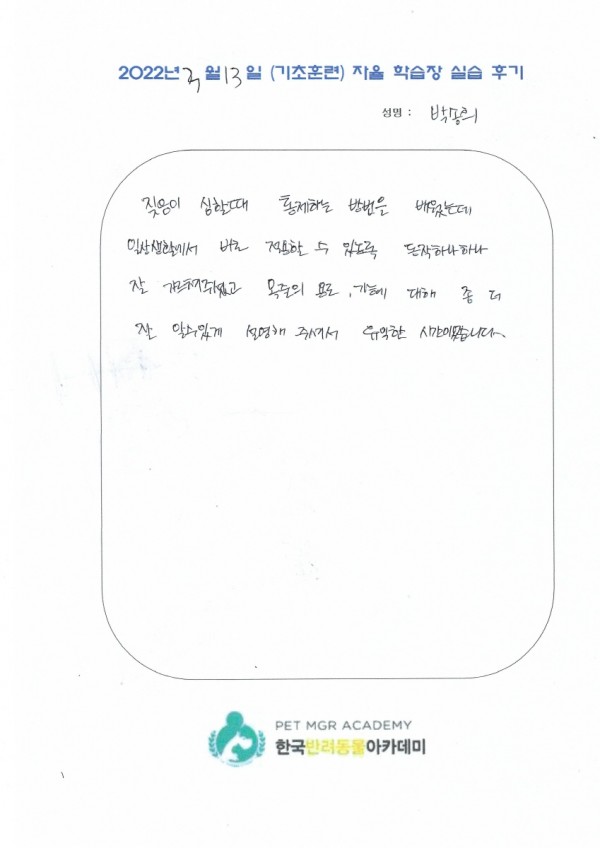 2022년 3월 13일 (기초훈련) 자율 학습장 실습 후기
성명 :
짖음이 심할때 통제하는 방법을 배웠는데
일상생활에서 바로 적용할 수 있도록 동작하나하나
잘 가르쳐주셨고 목줄의 용도, 기능에 대해 좀 더
잘 알수있게 설명해 주셔서 유익한 시간이였습니다.
PET MGR ACADEMY
한국반려동물아카데미